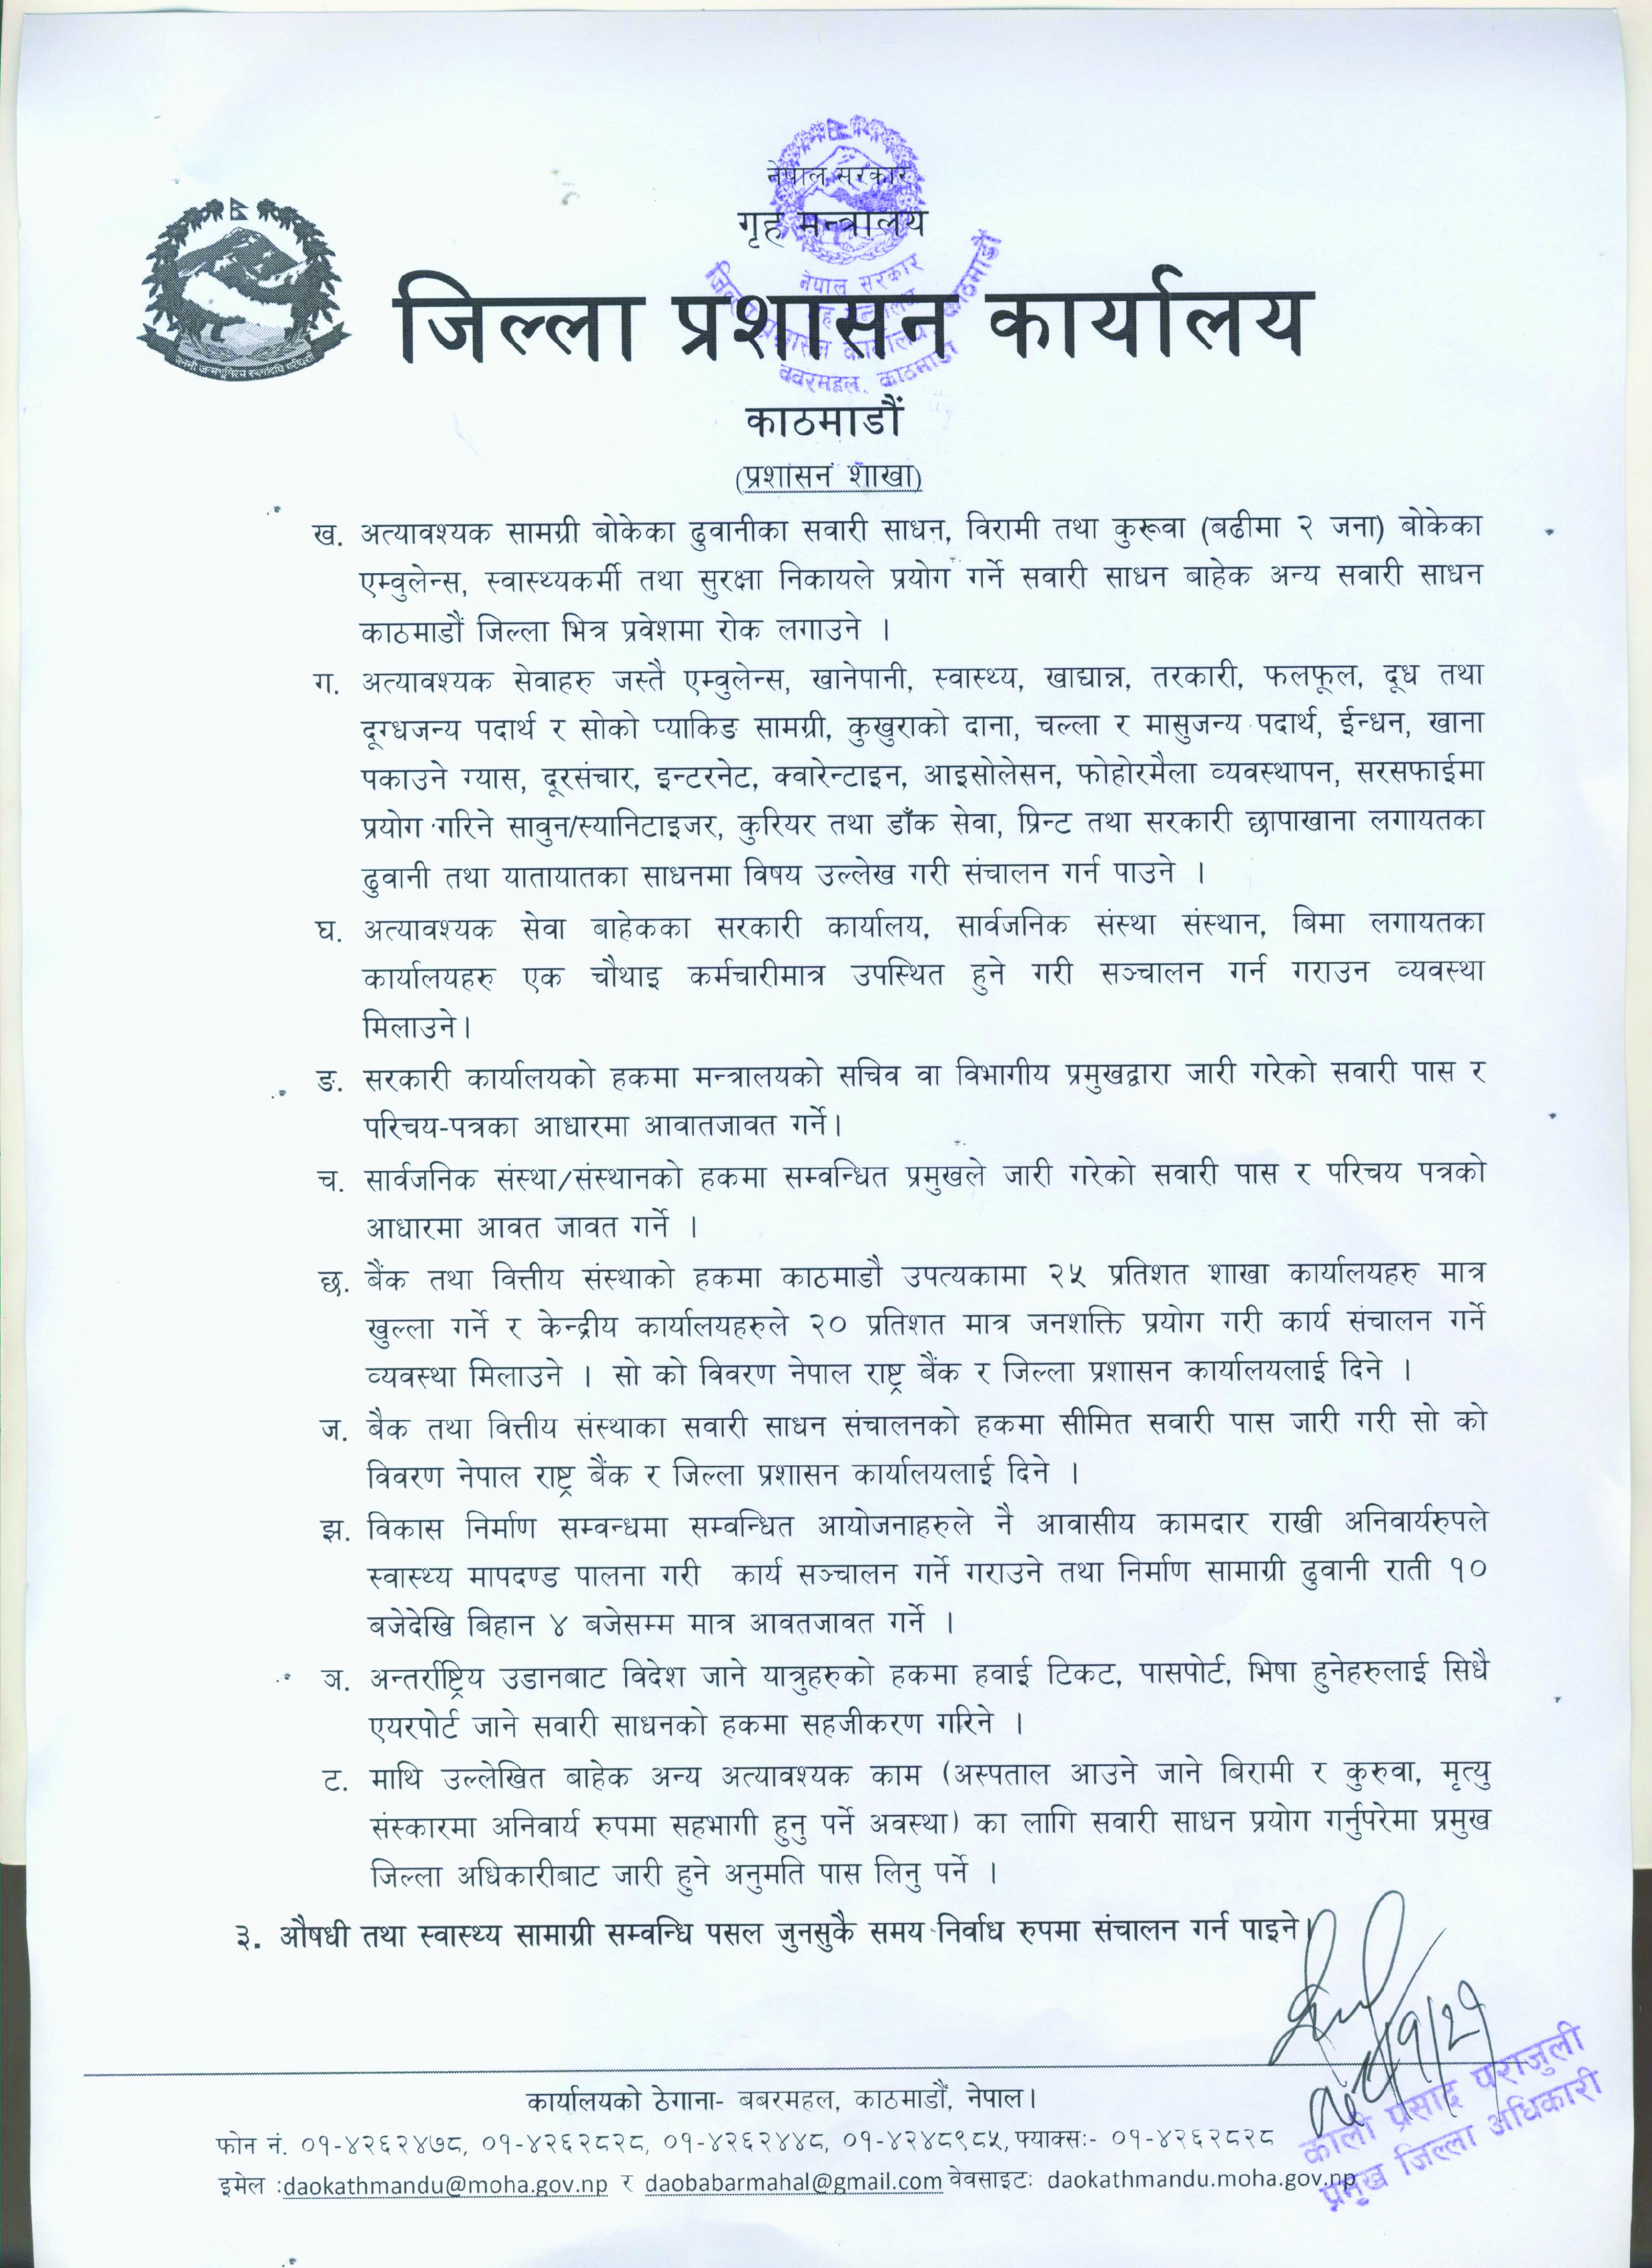 नेपाल सरकार
गृह मन्त्रालय
नेपाल सरकार
जिल्ला प्रशासन कार्यालय
बबरमहल, काठमाडौं
काठमाडौं
(प्रशासन शाखा)
ख. अत्यावश्यक सामग्री बोकेका ढुवानीका सवारी साधन, विरामी तथा कुरूवा (बढीमा २ जना) बोकेका
एम्वुलेन्स, स्वास्थ्यकर्मी तथा सुरक्षा निकायले प्रयोग गर्ने सवारी साधन बाहेक अन्य सवारी साधन
काठमाडौं जिल्ला भित्र प्रवेशमा रोक लगाउने ।
ग. अत्यावश्यक सेवाहरु जस्तै एम्वुलेन्स, खानेपानी, स्वास्थ्य, खाद्यान्न, तरकारी, फलफूल, दूध तथा
दूग्धजन्य पदार्थ र सोको प्याकिङ सामग्री, कुखुराको दाना, चल्ला र मासुजन्य पदार्थ, ईन्धन, खाना
पकाउने ग्यास, दूरसंचार, इन्टरनेट, क्वारेन्टाइन, आइसोलेसन, फोहोरमैला व्यवस्थापन, सरसफाईमा
प्रयोग गरिने सावुन/स्यानिटाइजर, कुरियर तथा डाँक सेवा, प्रिन्ट तथा सरकारी छापाखाना लगायतका
ढुवानी तथा यातायातका साधनमा विषय उल्लेख गरी संचालन गर्न पाउने ।
घ. अत्यावश्यक सेवा बाहेकका सरकारी कार्यालय, सार्वजनिक संस्था संस्थान, बिमा लगायतका
कार्यालयहरु एक चौथाइ कर्मचारीमात्र उपस्थित हुने गरी सञ्चालन गर्न गराउन व्यवस्था
मिलाउने।
ङ. सरकारी कार्यालयको हकमा मन्त्रालयको सचिव वा विभागीय प्रमुखद्वारा जारी गरेको सवारी पास र
परिचय-पत्रका आधारमा आवातजावत गर्ने।
च. सार्वजनिक संस्था/संस्थानको हकमा सम्वन्धित प्रमुखले जारी गरेको सवारी पास र परिचय पत्रको
आधारमा आवत जावत गर्ने ।
छ. बैंक तथा वित्तीय संस्थाको हकमा काठमाडौ उपत्यकामा २५ प्रतिशत शाखा कार्यालयहरु मात्र
खुल्ला गर्ने र केन्द्रीय कार्यालयहरुले २० प्रतिशत मात्र जनशक्ति प्रयोग गरी कार्य संचालन गर्ने
व्यवस्था मिलाउने । सो को विवरण नेपाल राष्ट्र बैंक र जिल्ला प्रशासन कार्यालयलाई दिने ।
ज. बैक तथा वित्तीय संस्थाका सवारी साधन संचालनको हकमा सीमित सवारी पास जारी गरी सो को
विवरण नेपाल राष्ट्र बैंक र जिल्ला प्रशासन कार्यालयलाई दिने ।
झ. विकास निर्माण सम्वन्धमा सम्वन्धित आयोजनाहरुले नै आवासीय कामदार राखी अनिवार्यरुपले
स्वास्थ्य मापदण्ड पालना गरी कार्य सञ्चालन गर्ने गराउने तथा निर्माण सामाग्री ढुवानी राती १०
बजेदेखि बिहान ४ बजेसम्म मात्र आवतजावत गर्ने ।
ञ. अन्तर्राष्ट्रिय उडानबाट विदेश जाने यात्रुहरुको हकमा हवाई टिकट, पासपोर्ट, भिषा हुनेहरुलाई सिधै
एयरपोर्ट जाने सवारी साधनको हकमा सहजीकरण गरिने ।
ट. माथि उल्लेखित बाहेक अन्य अत्यावश्यक काम (अस्पताल आउने जाने बिरामी र कुरुवा, मृत्यु
संस्कारमा अनिवार्य रुपमा सहभागी हुनु पर्ने अवस्था) का लागि सवारी साधन प्रयोग गर्नुपरेमा प्रमुख
जिल्ला अधिकारीबाट जारी हुने अनुमति पास लिनु पर्ने ।
३. औषधी तथा स्वास्थ्य सामाग्री सम्वन्धि पसल जुनसुकै समय निर्वाध रुपमा संचालन गर्न पाइने।
काली प्रसाद पराजुली
प्रमुख जिल्ला अधिकारी
कार्यालयको ठेगाना- बबरमहल, काठमाडौं, नेपाल।
फोन नं. ०१-४२६२४७८, ०१-४२६२८२८, ०१-४२६२४४८, ०१-४२४८९८५, फ्याक्सः- ०१-४२६२८२८
इमेल :daokathmandu@moha.gov.np र daobabarmahal@gmail.com वेवसाइटः daokathmandu.moha.gov.np